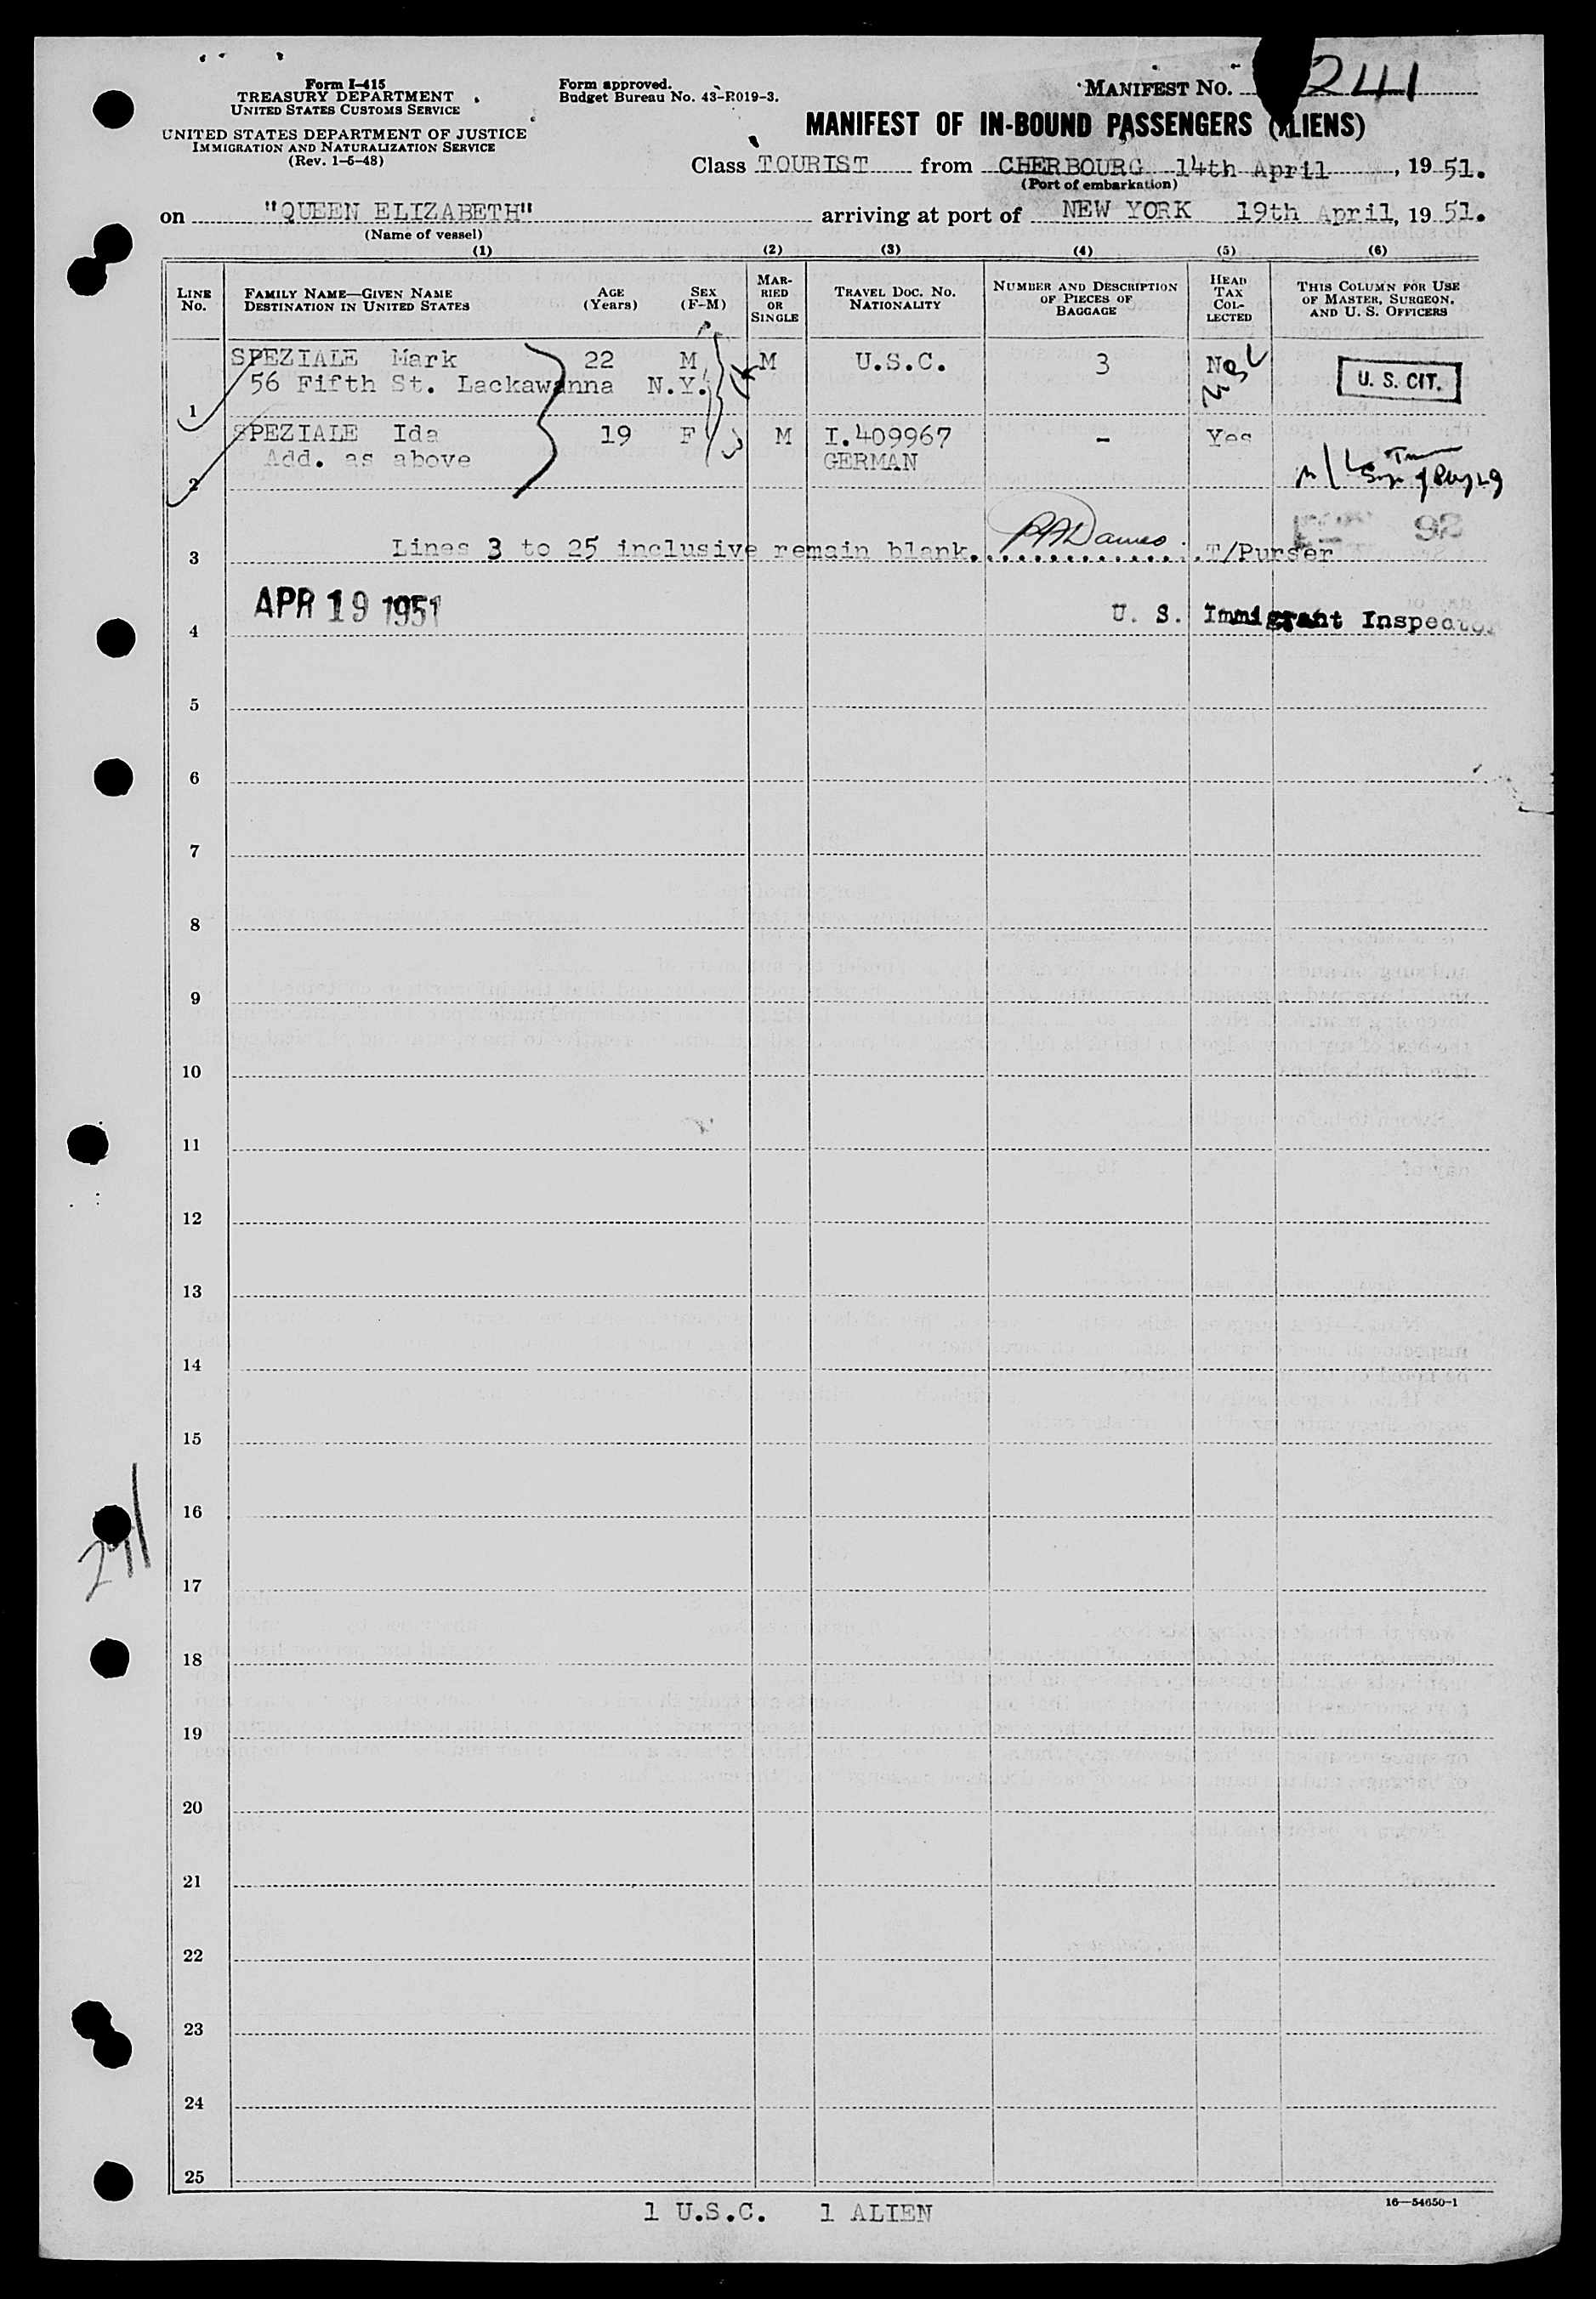 Form I-415
TREASURY DEPARTMENT
UNITED STATES CUSTOMS SERVICE
UNITED STATES DEPARTMENT OF JUSTICE
IMMIGRATION AND NATURALIZATION SERVICE
(Rev. 1-6-48)
Form approved.
Budget Bureau No. 43-R019-3.
MANIFEST NO. 241
MANIFEST OF IN-BOUND PASSENGERS (ALIENS)
Class TOURIST from CHERBOURG 14th April, 19 51.
(Port of embarkation)
on "QUEEN ELIZABETH" arriving at port of NEW YORK 19th April, 19 51.
(Name of vessel)
(1) (2) (3) (4) (5) (6)
LINE NO.
FAMILY NAME—GIVEN NAME
DESTINATION IN UNITED STATES
AGE (Years)
SEX (F-M)
MARRIED OR SINGLE
TRAVEL DOC. NO.
NATIONALITY
NUMBER AND DESCRIPTION OF PIECES OF BAGGAGE
HEAD TAX COLLECTED
THIS COLUMN FOR USE OF MASTER, SURGEON, AND U. S. OFFICERS
SPEZIALE Mark 22 M M U.S.C. 3 No U. S. CIT.
56 Fifth St. Lackawanna N.Y.
1
SPEZIALE Ida 19 F M I.409967 - Yes
Add. as above GERMAN
2
3 Lines 3 to 25 inclusive remain blank. T/Purser
98
APR 19 1951 U. S. Immigrant Inspector
4
5
6
7
8
9
10
11
12
13
14
15
16
241
17
18
19
20
21
22
23
24
25
1 U.S.C. 1 ALIEN
16—54650-1